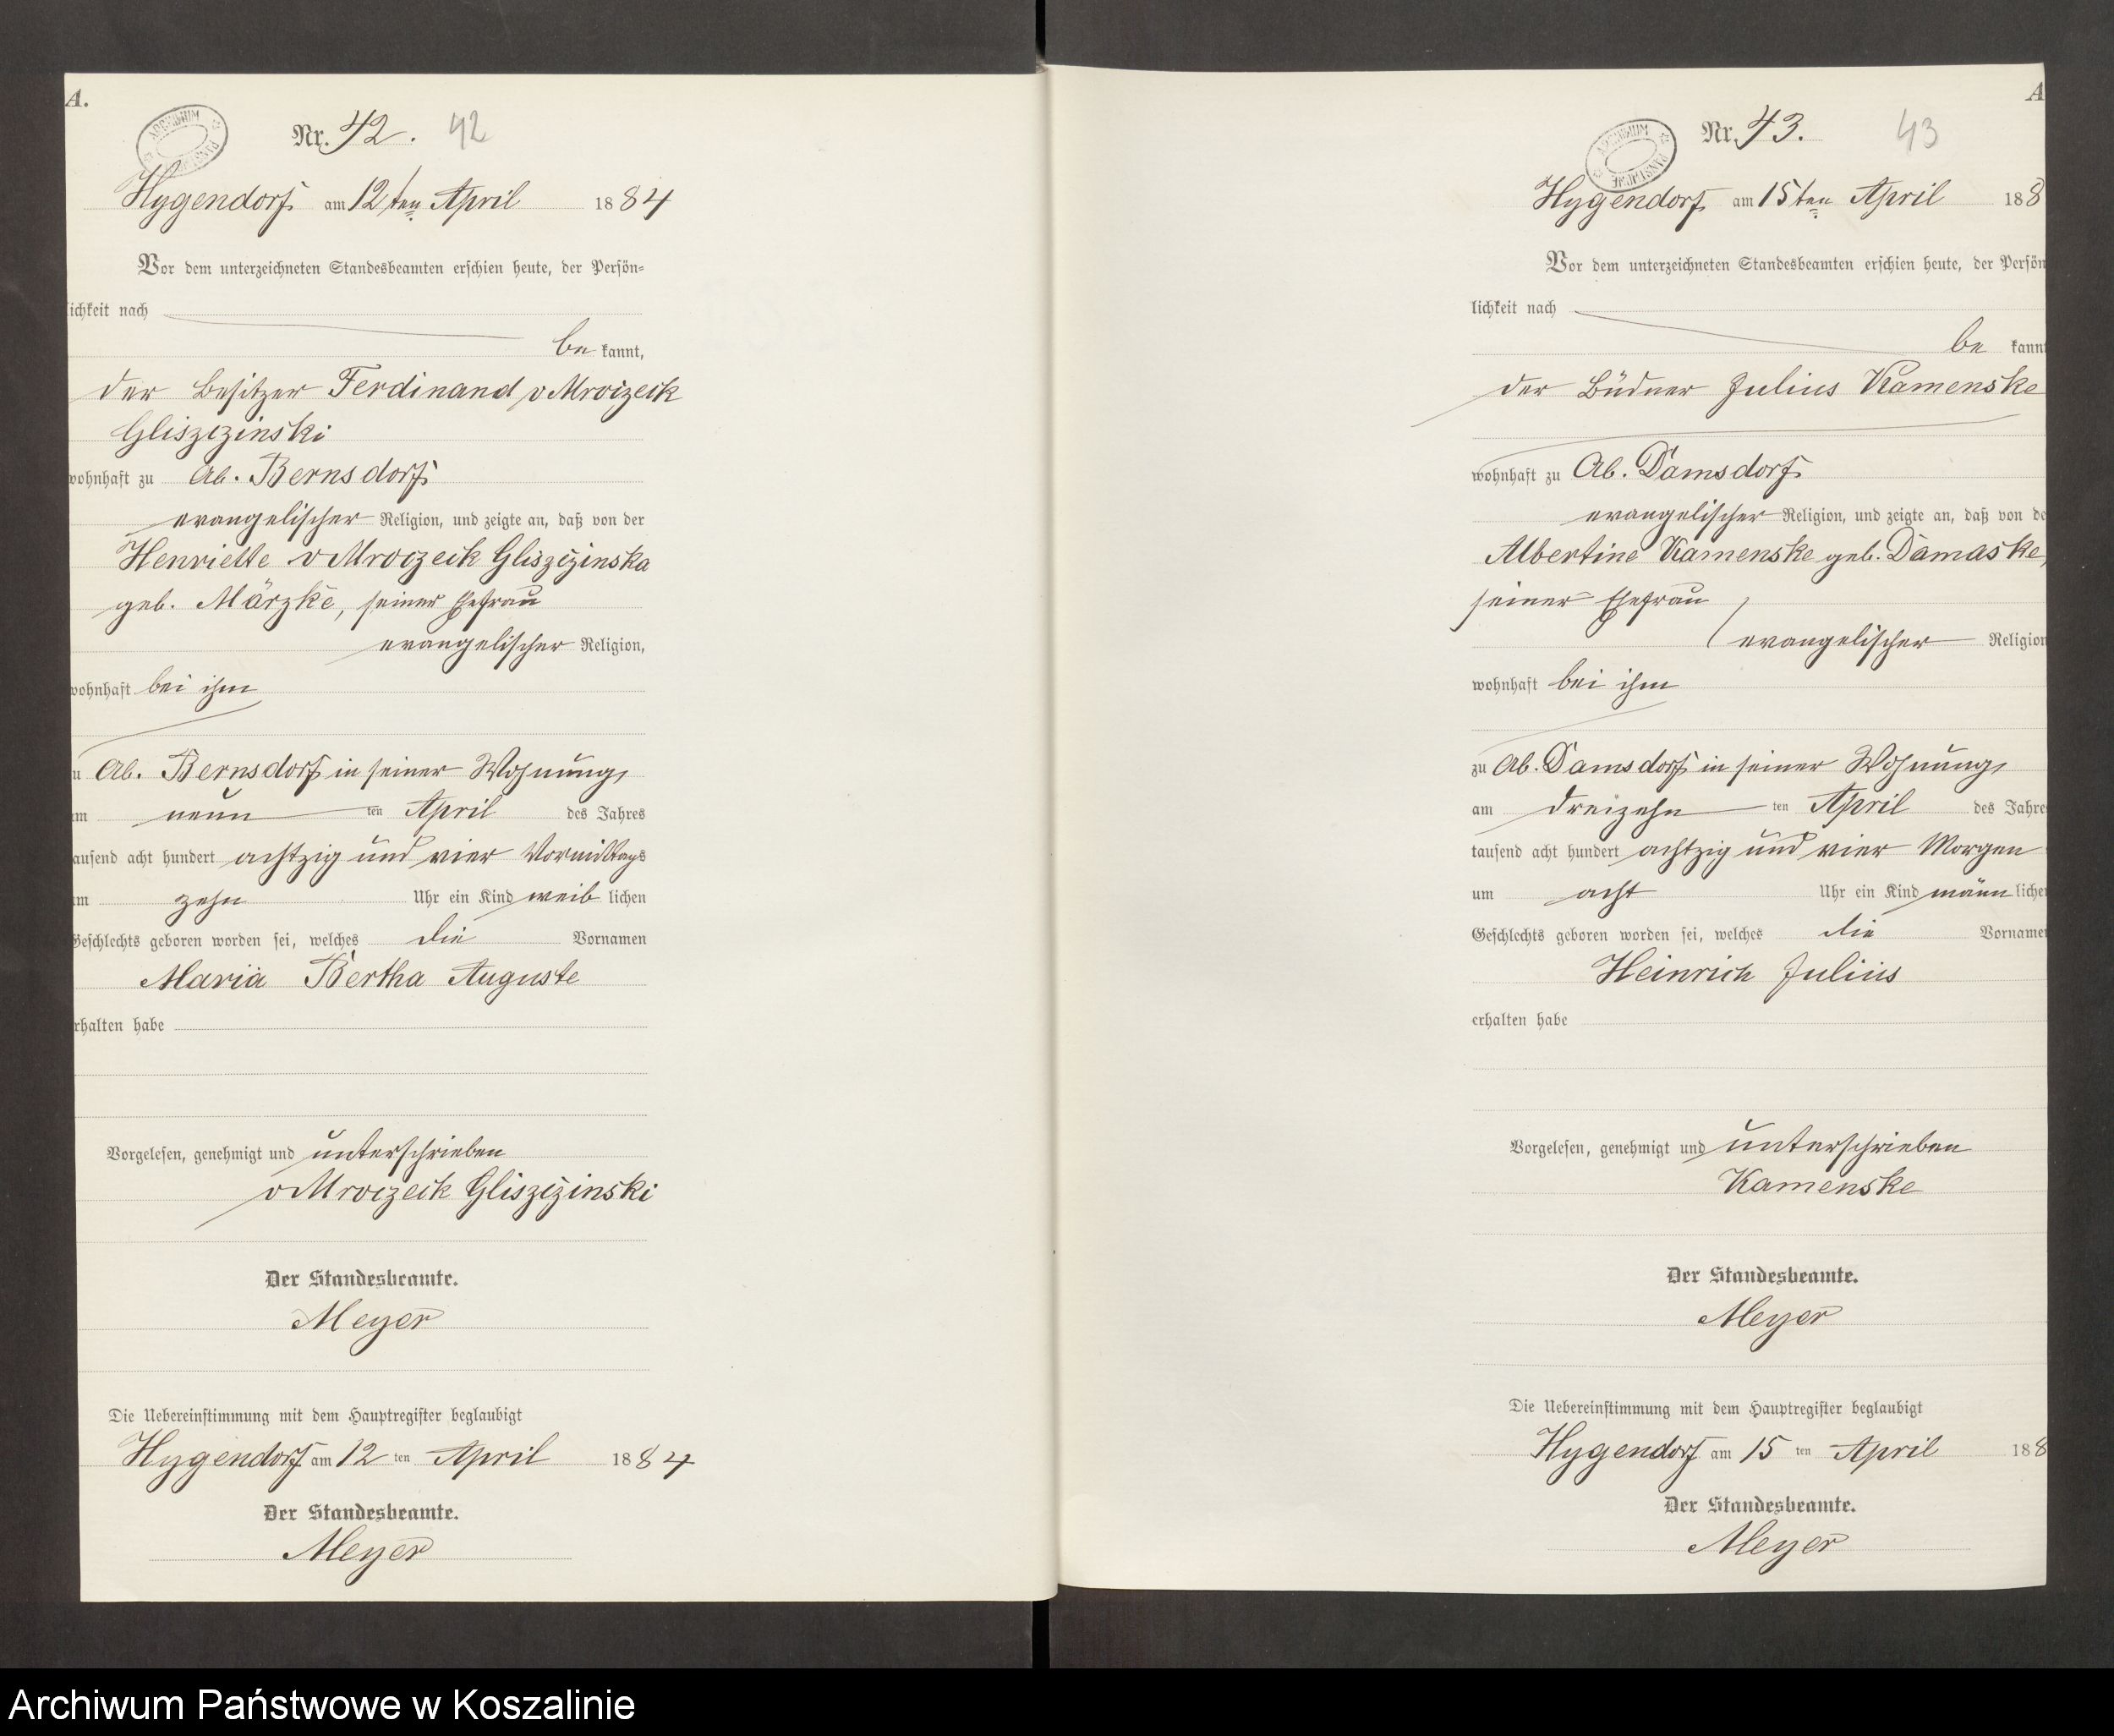 A.
Nr. 42. 42
Hygendorf am 12ten April 1884
Vor dem unterzeichneten Standesbeamten erschien heute, der Persön-
lichkeit nach
be kannt,
der Besitzer Ferdinand v Mroczeck
Gliszczinski
wohnhaft zu Ab. Bernsdorf
evangelischer Religion, und zeigte an, daß von der
Henriette v Mroczeck Gliszczinska
geb. Märzke, seiner Ehefrau
evangelischer Religion,
wohnhaft bei ihm
zu Ab. Bernsdorf in seiner Wohnung,
am neun ten April des Jahres
tausend acht hundert achtzig und vier Vormittags
um zehn Uhr ein Kind weib lichen
Geschlechts geboren worden sei, welches die Vornamen
Maria Bertha Auguste
erhalten habe
Vorgelesen, genehmigt und unterschrieben
v Mroczeck Gliszczinski
Der Standesbeamte.
Meyer
Die Uebereinstimmung mit dem Hauptregister beglaubigt
Hygendorf am 12 ten April 1884
Der Standesbeamte.
Meyer
A
Nr. 43. 43
Hygendorf am 15ten April 188
Vor dem unterzeichneten Standesbeamten erschien heute, der Persön
lichkeit nach
be kannt
der Büdner Julius Kamenske
wohnhaft zu Ab. Damsdorf
evangelischer Religion, und zeigte an, daß von de
Albertine Kamenske geb. Damaske,
seiner Ehefrau
evangelischer Religion
wohnhaft bei ihm
zu Ab. Damsdorf in seiner Wohnung,
am dreizehn ten April des Jahre
tausend acht hundert achtzig und vier Morgen
um acht Uhr ein Kind männ liche
Geschlechts geboren worden sei, welches die Vorname
Heinrich Julius
erhalten habe
Vorgelesen, genehmigt und unterschrieben
Kamenske
Der Standesbeamte.
Meyer
Die Uebereinstimmung mit dem Hauptregister beglaubigt
Hygendorf am 15 ten April 188
Der Standesbeamte.
Meyer
Archiwum Państwowe w Koszalinie